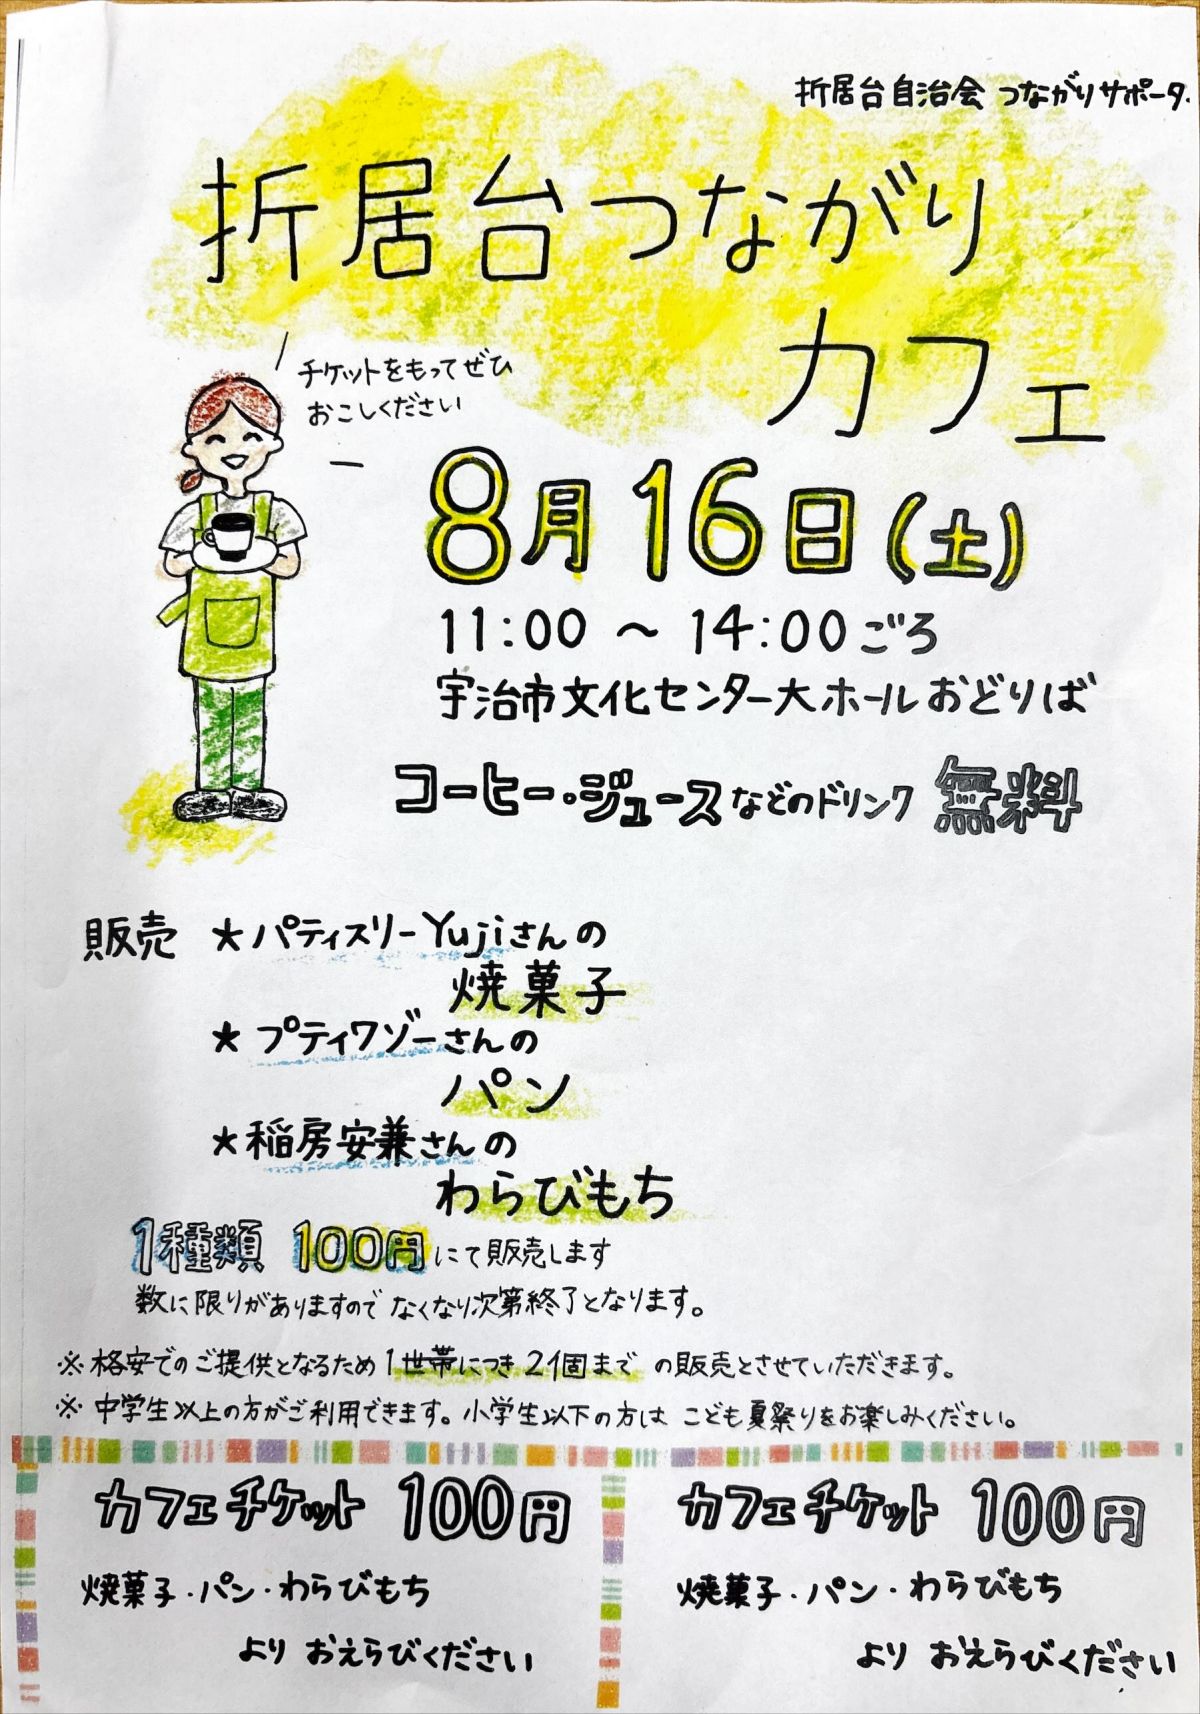 折居台自治会 つながりサポータ.
折居台つながり
カフェ
チケットをもってぜひ
おこしください
8月16日(土)
11:00 ~ 14:00ごろ
宇治市文化センター大ホールおどりば
コーヒー・ジュースなどのドリンク 無料
販売 ★パティスリーYujiさんの
焼菓子
★プティワゾーさんの
パン
★稲房安兼さんの
わらびもち
1種類 100円にて販売します
数に限りがありますので なくなり次第終了となります。
※格安でのご提供となるため1世帯につき2個まで の販売とさせていただきます。
※中学生以上の方がご利用できます。小学生以下の方は こども夏祭りをお楽しみください。
カフェチケット 100円
焼菓子・パン・わらびもち
より おえらびください
カフェチケット 100円
焼菓子・パン・わらびもち
より おえらびください